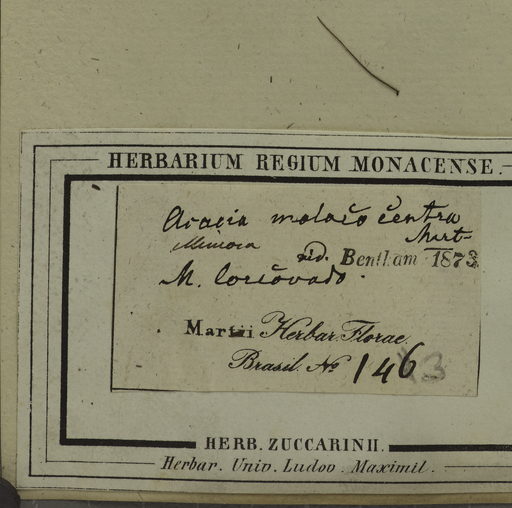 HERBARIUM REGIUM MONACENSE.
Acacia malacocentra
Mart
Mimosa
vid. Bentham 1873
M. Corcovado.
Martii Herbar. Florae
Brasil. No 146
HERB. ZUCCARINII.
Herbar. Univ. Ludov. Maximil.